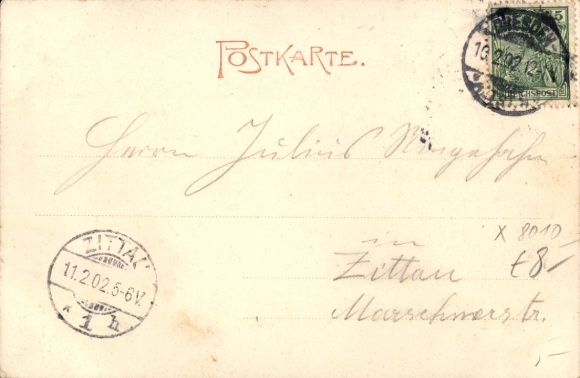 POSTKARTE.
5
DRESDEN-
10.2.02.12-
REICHSPOST
Herrn Julius
in
Zittau
Marschnerstr.
ZITTAU
11.2.02.5-6V.
* 1 h
X 8010
€8-